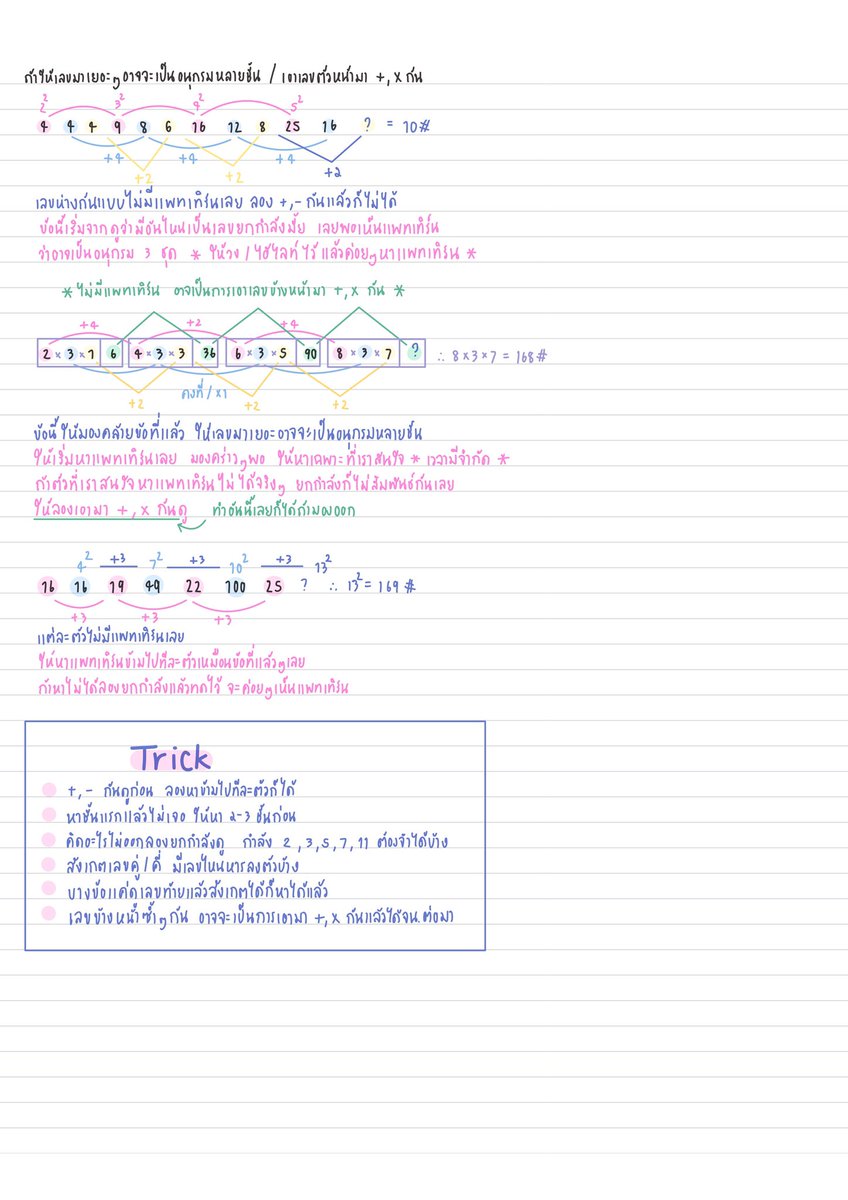 ถ้าให้เลขมาเยอะๆ อาจจะเป็นอนุกรมหลายชั้น / เอาเลขตัวหน้ามา +, x กัน
2² 3² 4² 5²
4 4 4 9 8 6 16 12 8 25 16 ? = 10#
+4 +4 +4
+2 +2 +2
เลขห่างกันแบบไม่มีแพทเทิร์นเลย ลอง +,- กันแล้วก็ไม่ได้
ข้อนี้เริ่มจากดูว่ามีอันไหนเป็นเลขยกกำลังมั้ย เลยพอเห็นแพทเทิร์น
ว่าอาจเป็นอนุกรม 3 ชุด * ให้วง / ไฮไลท์ไว้ แล้วค่อยๆหาแพทเทิร์น *
* ไม่มีแพทเทิร์น อาจเป็นการเอาเลขข้างหน้ามา +, x กัน *
+4 +2 +4
2 x 3 x 1 6 4 x 3 x 3 36 6 x 3 x 5 90 8 x 3 x 7 ? ∴ 8 x 3 x 7 = 168#
คงที่ / x1
+2 +2 +2
ข้อนี้ให้มองคล้ายข้อที่แล้ว ให้เลขมาเยอะอาจจะเป็นอนุกรมหลายชั้น
ให้เริ่มหาแพทเทิร์นเลย มองคร่าวๆพอ ให้หาเฉพาะที่เราสนใจ * เวลามีจำกัด *
ถ้าตัวที่เราสนใจหาแพทเทิร์นไม่ได้จริงๆ ยกกำลังก็ไม่สัมพันธ์กันเลย
ให้ลองเอามา +, x กันดู ทำอันนี้เลยก็ได้ถ้ามองออก
4² +3 7² +3 10² +3 13²
16 16 19 49 22 100 25 ? ∴ 13² = 169 #
+3 +3 +3
แต่ละตัวไม่มีแพทเทิร์นเลย
ให้หาแพทเทิร์นข้ามไปทีละตัวเหมือนข้อที่แล้วๆเลย
ถ้าหาไม่ได้ลองยกกำลังแล้วทดไว้ จะค่อยๆเห็นแพทเทิร์น
Trick
+,- กันดูก่อน ลองหาข้ามไปทีละตัวก็ได้
หาชั้นแรกแล้วไม่เจอ ให้หา 2-3 ชั้นก่อน
คิดอะไรไม่ออกลองยกกำลังดู กำลัง 2 , 3 , 5 , 7 , 11 ต้องจำได้บ้าง
สังเกตเลขคู่ / คี่ มีเลขไหนหารลงตัวบ้าง
บางข้อแค่ดูเลขท้ายแล้วสังเกตได้ก็หาได้แล้ว
เลขข้างหน้าซ้ำๆกัน อาจจะเป็นการเอามา +, x กันแล้วได้จน.ต่อมา